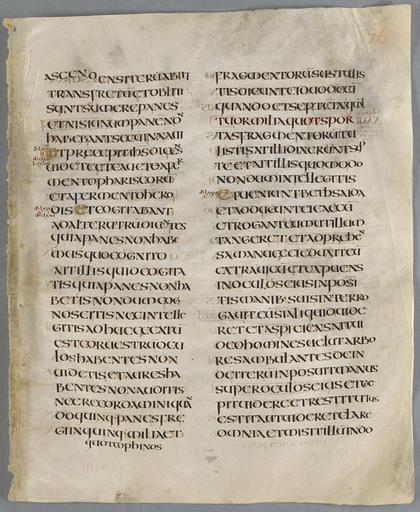 76
ASCENDENSITERUMABIIT
TRANSFRETUETOBLITI
SUNTSUMEREPANES
ETNISIUNUMPANENO
HABEBANTSECUINNAUI
MENTOPHARISEORU
ETAFERMENTOHERO
DISETCOGITABANT
ADALTERUTRUDICETES
QUIAPANESNONHABE
MUSQUOCOGNITO
AITILLISQUIDCOGITA
TISQUIAPANESNONHA
BETISNONDUMCOG
NOSCITISNECINTELLE
GITISADHUCCAECATU
ESTCORUESTRUOCU
LOSHABENTESNON
UIDETISETAURESHA
BENTESNONAUDITIS
NECRECORDAMINIQUA
DOQUINQ·PANESFRE
GIINQUINQ·MILIAET
quotcophinos
FRAGMENTORUSUSTULIS
TISDICUNTEIDUODECI
QUANDOETSEPTEPANI
TUORMILIAQUOTSPOR
TASFRAGMENTORUTU
LISTISETILLIDIXERUNTSP
TEETAITILLISQUOMODO
NONDUMINTELLEGITIS
ETUENIUNTBETHSAIDA
ETADDUCUNTEICAECU
ETROGANTEUMUTILLUM
TANGERETETADPREHE
SAMANUCAECIDUXITEU
EXTRAUICUETEXPUENS
INOCULOSEIUSINPOSI
TISMANIB·SUISINTERRO
GAUITEUSIALIQUIDUIDE
RETETASPICIENSAITUI
DEOHOMINESUELUTARBO
RESAMBULANTESDEIN
DEITERUINPOSUITMANUS
SUPEROCULOSEIUSETCOE
PITUIDEREETRESTITUTUS
ESTITAUTUIDERETCLARE
OMNIAETMISITILLUINDO